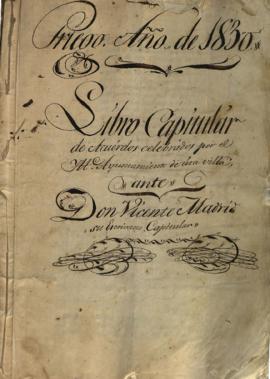 Priego. Año de 1830.
Libro Capitular
de Acuerdos celebrados por el
Ayuntamiento de esta villa,
ante
Don Vicente Madri
su Capitular